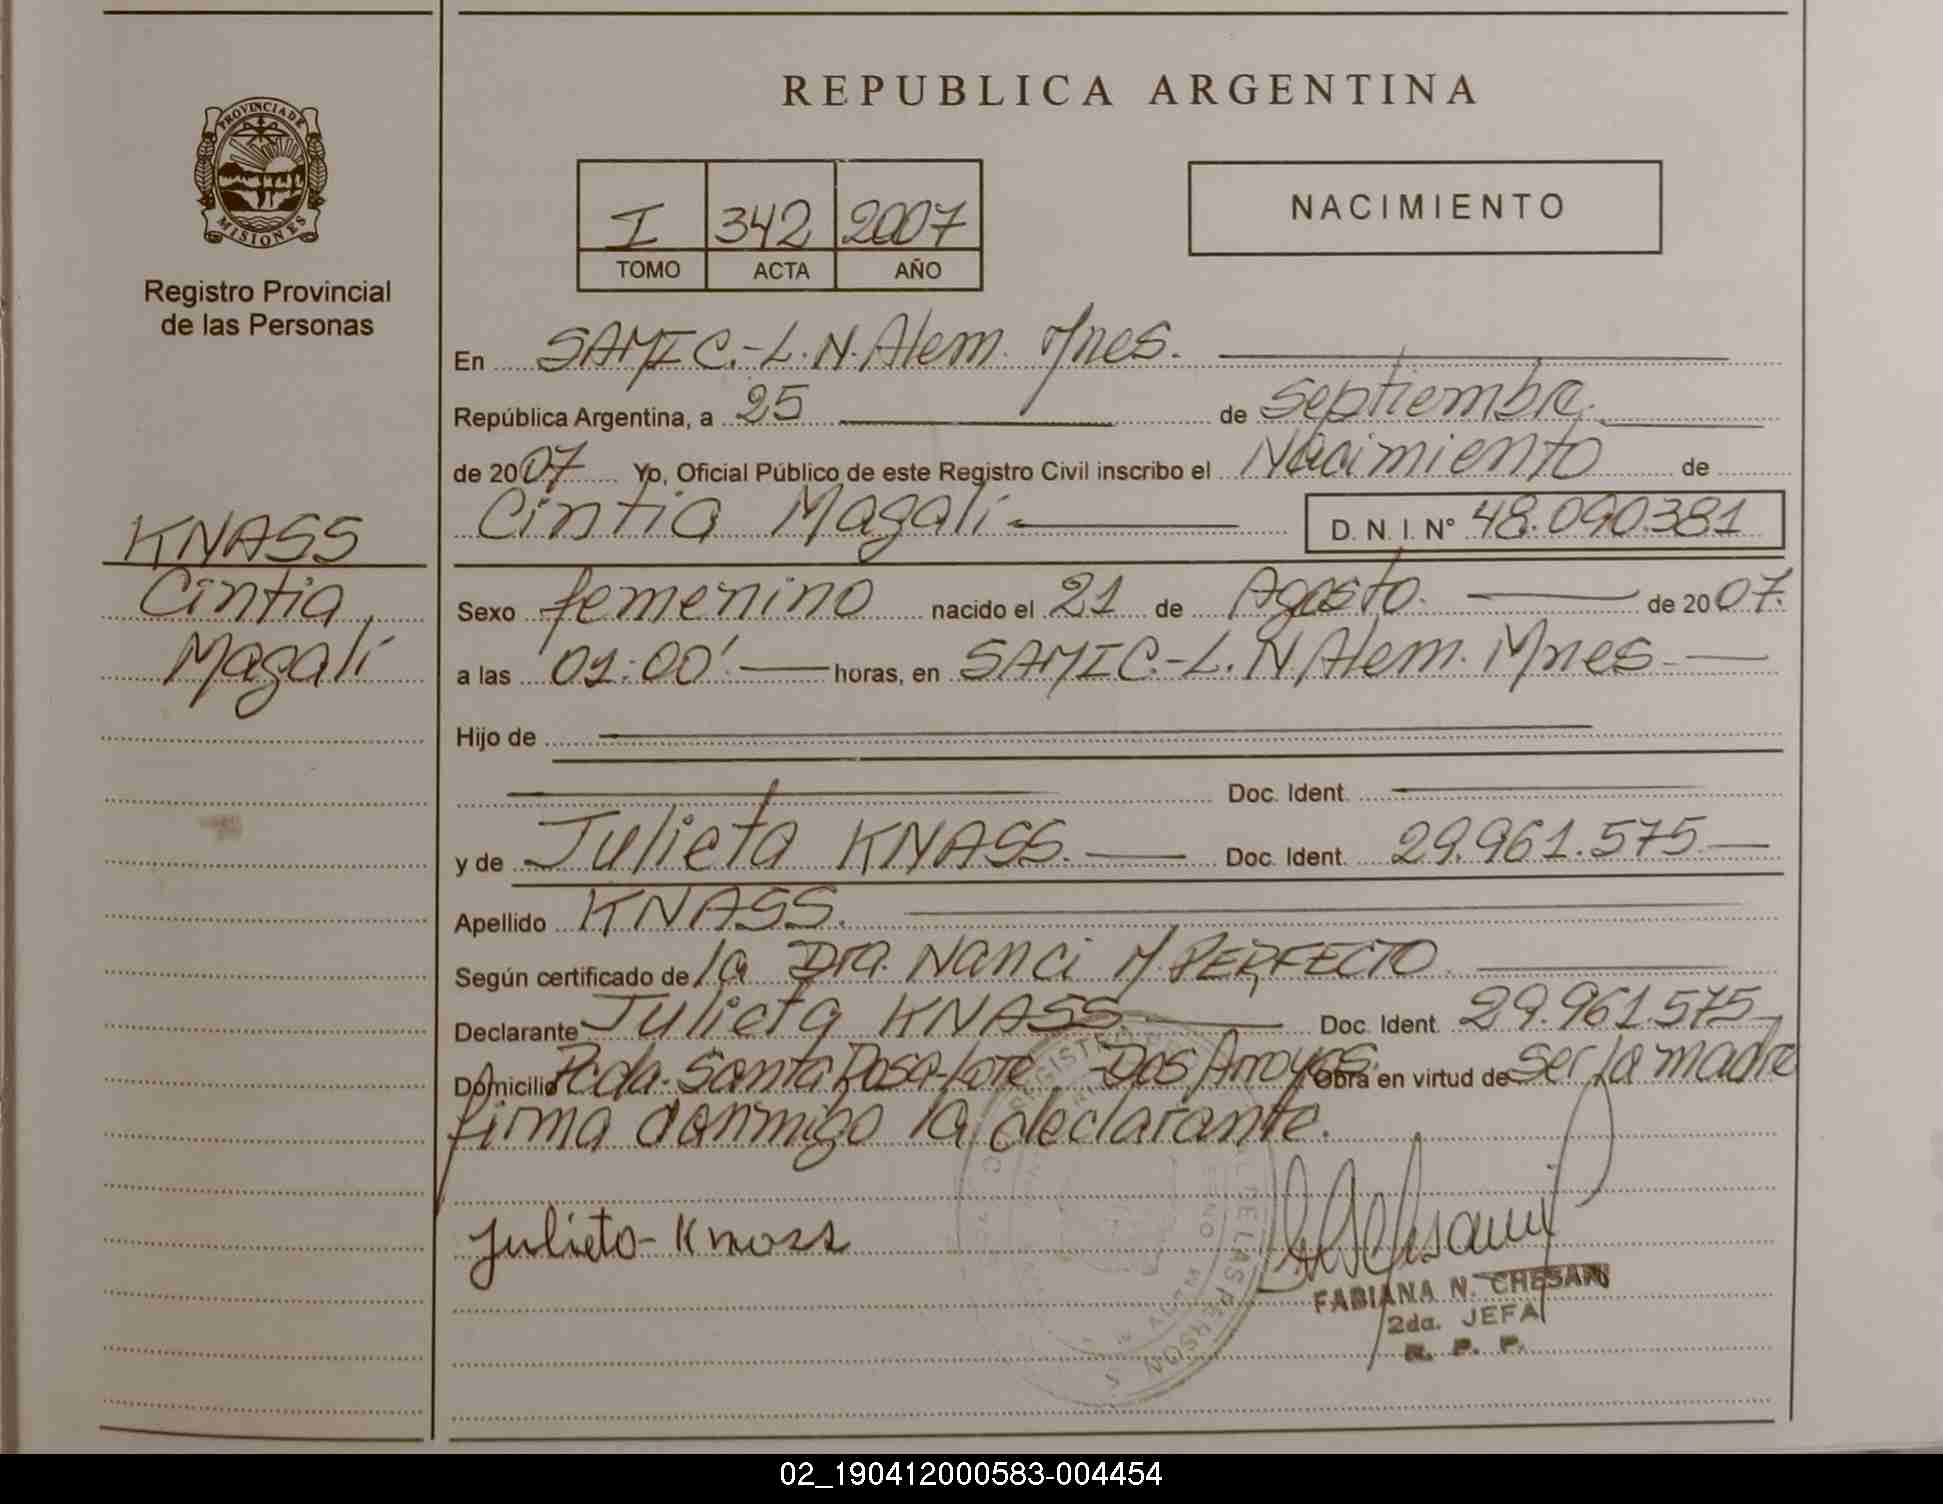 REPUBLICA ARGENTINA
PROVINCIA DE
MISIONES
Registro Provincial
de las Personas
I 342 2007
TOMO ACTA AÑO
NACIMIENTO
En SAMIC.-L.N.Alem. Mnes.
República Argentina, a 25 de Septiembre.
de 2007 Yo, Oficial Público de este Registro Civil inscribo el Nacimiento de
Cintia Magalí D. N. I. N° 48.090.381
KNASS
Cintia
Magalí
Sexo femenino nacido el 21 de Agosto. de 2007.
a las 01:00' horas, en SAMIC.-L.N.Alem. Mnes.
Hijo de
Doc. Ident.
y de Julieta KNASS. Doc. Ident. 29.961.575
Apellido KNASS.
Según certificado de la Dra. Nanci M. PERFECTO
Declarante Julieta KNASS Doc. Ident. 29.961.575
Domicilio Pcda. Santa Rosa-Lote. -Dos Arroyos. Obra en virtud de ser la madre
firma conmigo la declarante.
Julieta-Knass
FABIANA N. CHESANI
2da. JEFA
R. P. P.
02_190412000583-004454